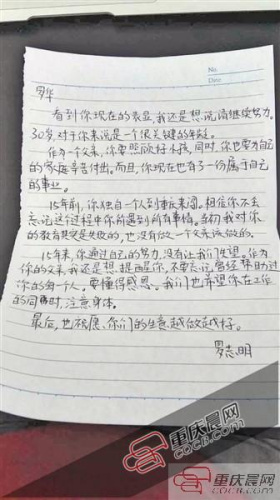 No.
Date
罗华
看到你现在的表显,我还是想说请继续努力。
30岁,对于你来说是一个很关键的年龄。
作为一个父亲,你要照顾好小孩,同时,你也要为自己
的家庭辛苦付出。而且,你现在也有了一份属于自己
的事业。
15年前,你独自一个人到重庆来闯。相信你不会
忘记这个过程中你所遇到所有事情。当初我对你
的教育是失败的,也没有做一个父亲该做的。
15年来,你通过自己的努力,没有让我们失望。作为
你的父亲,我还是想提醒你,不要忘记曾经帮助过
你的每一个人,要懂得感恩。我们也希望你在工作
的同时,注意身体。
最后,也祝愿,你们的生意越做越好。
罗志明
重庆晨网
重庆晨网
CQCB.COM